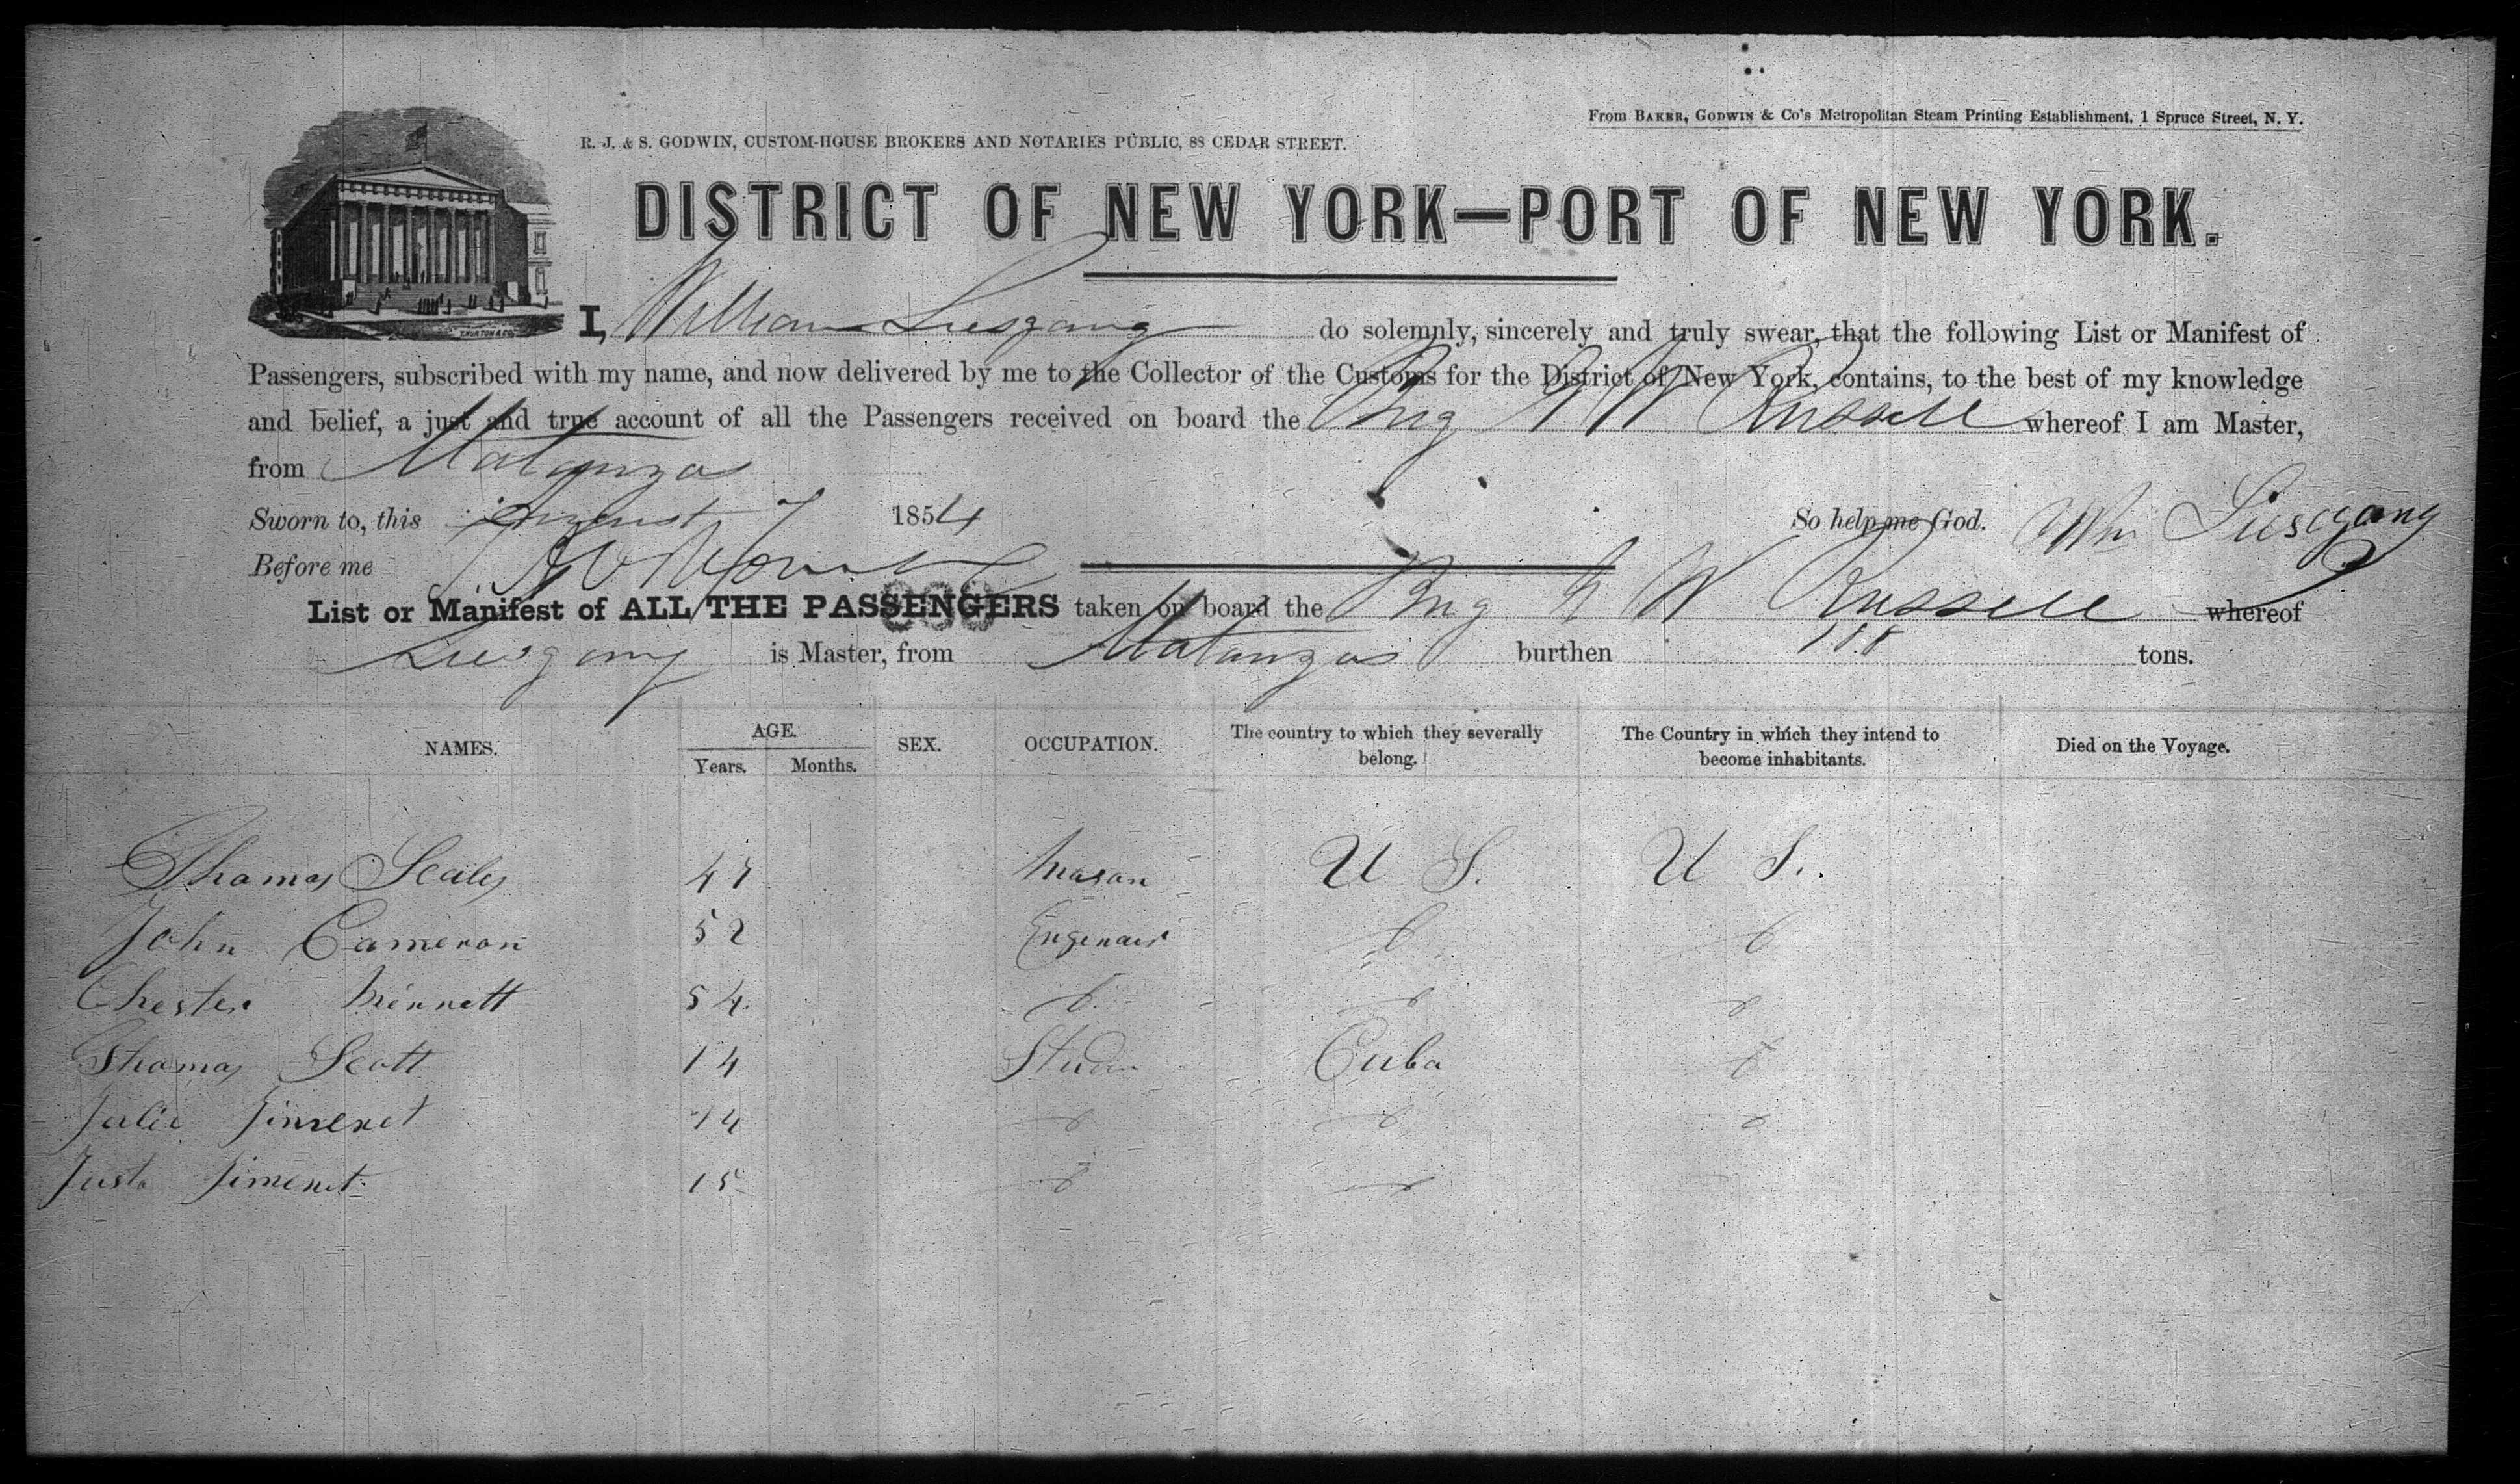 From BAKER, GODWIN & Co's Metropolitan Steam Printing Establishment, 1 Spruce Street, N. Y.
R. J. & S. GODWIN, CUSTOM-HOUSE BROKERS AND NOTARIES PUBLIC, 88 CEDAR STREET.
DISTRICT OF NEW YORK—PORT OF NEW YORK.
I, William Liesgang do solemnly, sincerely and truly swear, that the following List or Manifest of
Passengers, subscribed with my name, and now delivered by me to the Collector of the Customs for the District of New York, contains, to the best of my knowledge
and belief, a just and true account of all the Passengers received on board the Brig W Russell whereof I am Master,
from Matanzas
Sworn to, this august 7 1854 So help me God. Wm Liesegang
Before me
List or Manifest of ALL THE PASSENGERS taken on board the Brig W Russell whereof
Liesgang is Master, from Matanzas burthen 188 tons.
NAMES. AGE. SEX. OCCUPATION. The country to which they severally belong. The Country in which they intend to become inhabitants. Died on the Voyage.
Years. Months.
Thomas 47 Mason U S. U S.
John Cameron 52 Engenair
Chester Mennett 54
Thomas Scott 14 Studen Cuba
Julio Jimenet 14
Justo Jimenet 15